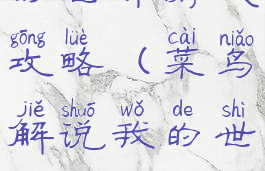 gōng lüè cài niǎo
攻略(菜鸟
jiě shuō wǒ de shì
解说我的世